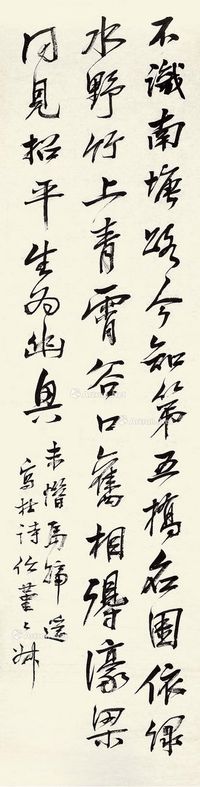 不識南塘路今知第五橋名園依緑
水野竹上青霄谷口舊相得濠梁
同見招平生為幽興
未惜馬蹄遥
寫杜詩任堇々叔